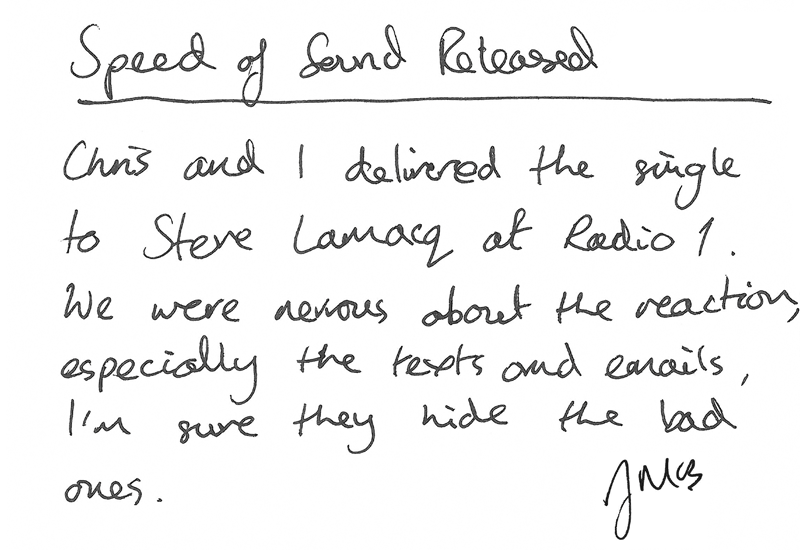 Speed of Sound Released
Chris and I delivered the single
to Steve Lamacq at Radio 1.
We were nervous about the reaction,
especially the texts and emails,
I'm sure they hide the bad
ones.
J McB